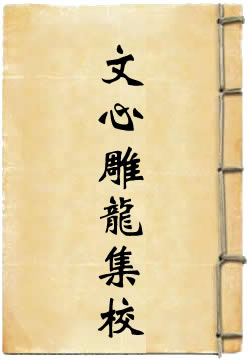 文心雕龍集校